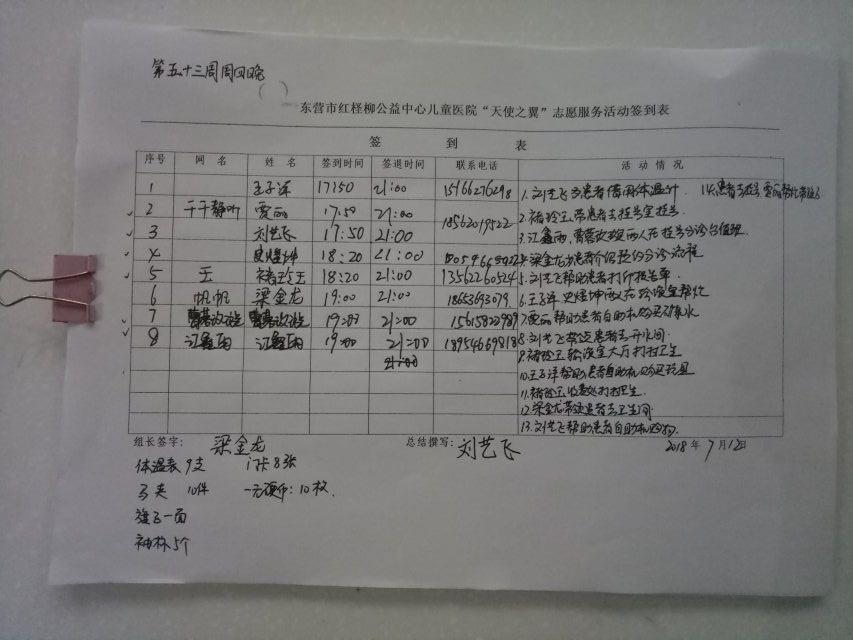 第五十三周周四晚
( )
东营市红柽柳公益中心儿童医院“天使之翼”志愿服务活动签到表
签 到 表
序号 网 名 姓 名 签到时间 签退时间 联系电话 活 动 情 况
1 王子洋 17:50 21:00 15166276298 1.刘艺飞为患者借用体温计
2 千千静听 贾丽 17:50 21:00 18562019522 2.褚玲玉带患者去挂号室挂号
3 刘艺飞 17:50 21:00 3.江鑫雨,曹蓉 两人在挂号分诊台值班
4 史煜坤 18:20 21:00 4.梁金龙为患者介绍预约分诊流程
5 玉 褚玲玉 18:20 21:00 13562260524 5.刘艺飞帮助患者打印报告单
6 帆帆 梁金龙 19:00 21:00 1865393079 6.王子洋史煜坤两人在输液室帮忙
7 19:00 21:00 15615822989 7.贾丽帮助患者自助机购买矿泉水
8 江鑫雨 江鑫雨 19:00 21:00 18954669818 8.刘艺飞带领患者去开水间
21:00 9.褚玲玉输液室大厅打扫卫生
10.王子洋帮助患者自助机购买玩具
11.褚玲玉 打扫卫生
12.梁金龙带领患者去卫生间
13.刘艺飞帮助患者自助机购物
组长签字: 梁金龙 总结撰写: 刘艺飞 2018年7月12日
体温表9支 门卡8张
马夹 10件 一元硬币:10枚
旗子一面
袖标5个